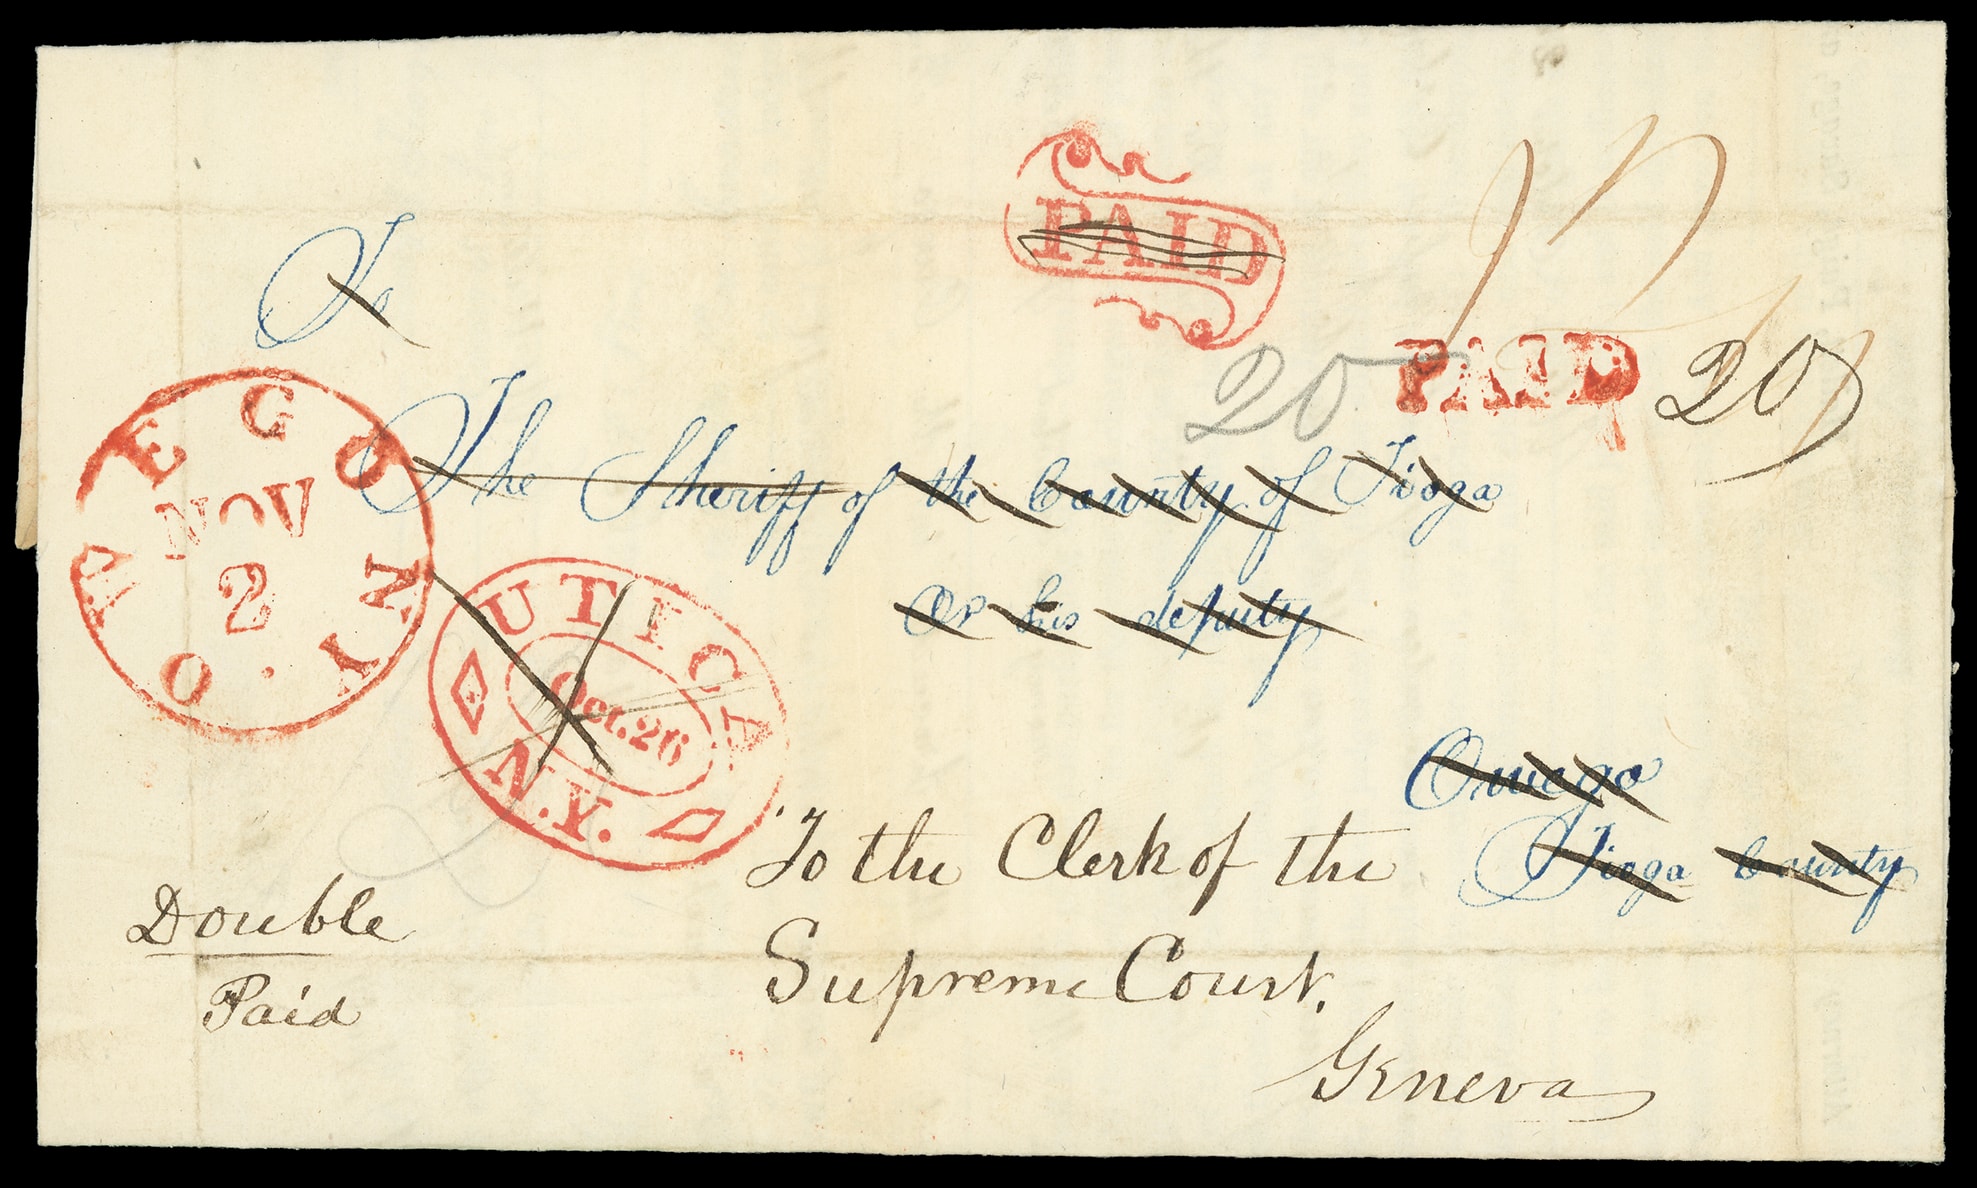 To
PAID
The Sheriff of the County of Tioga
20 PAID 20
Or his deputy
OWEGO N.Y.
NOV
2
UTICA
Oct. 26
N.Y.
Owego
Tioga County
To the Clerk of the
Supreme Court,
Geneva
Double
Paid